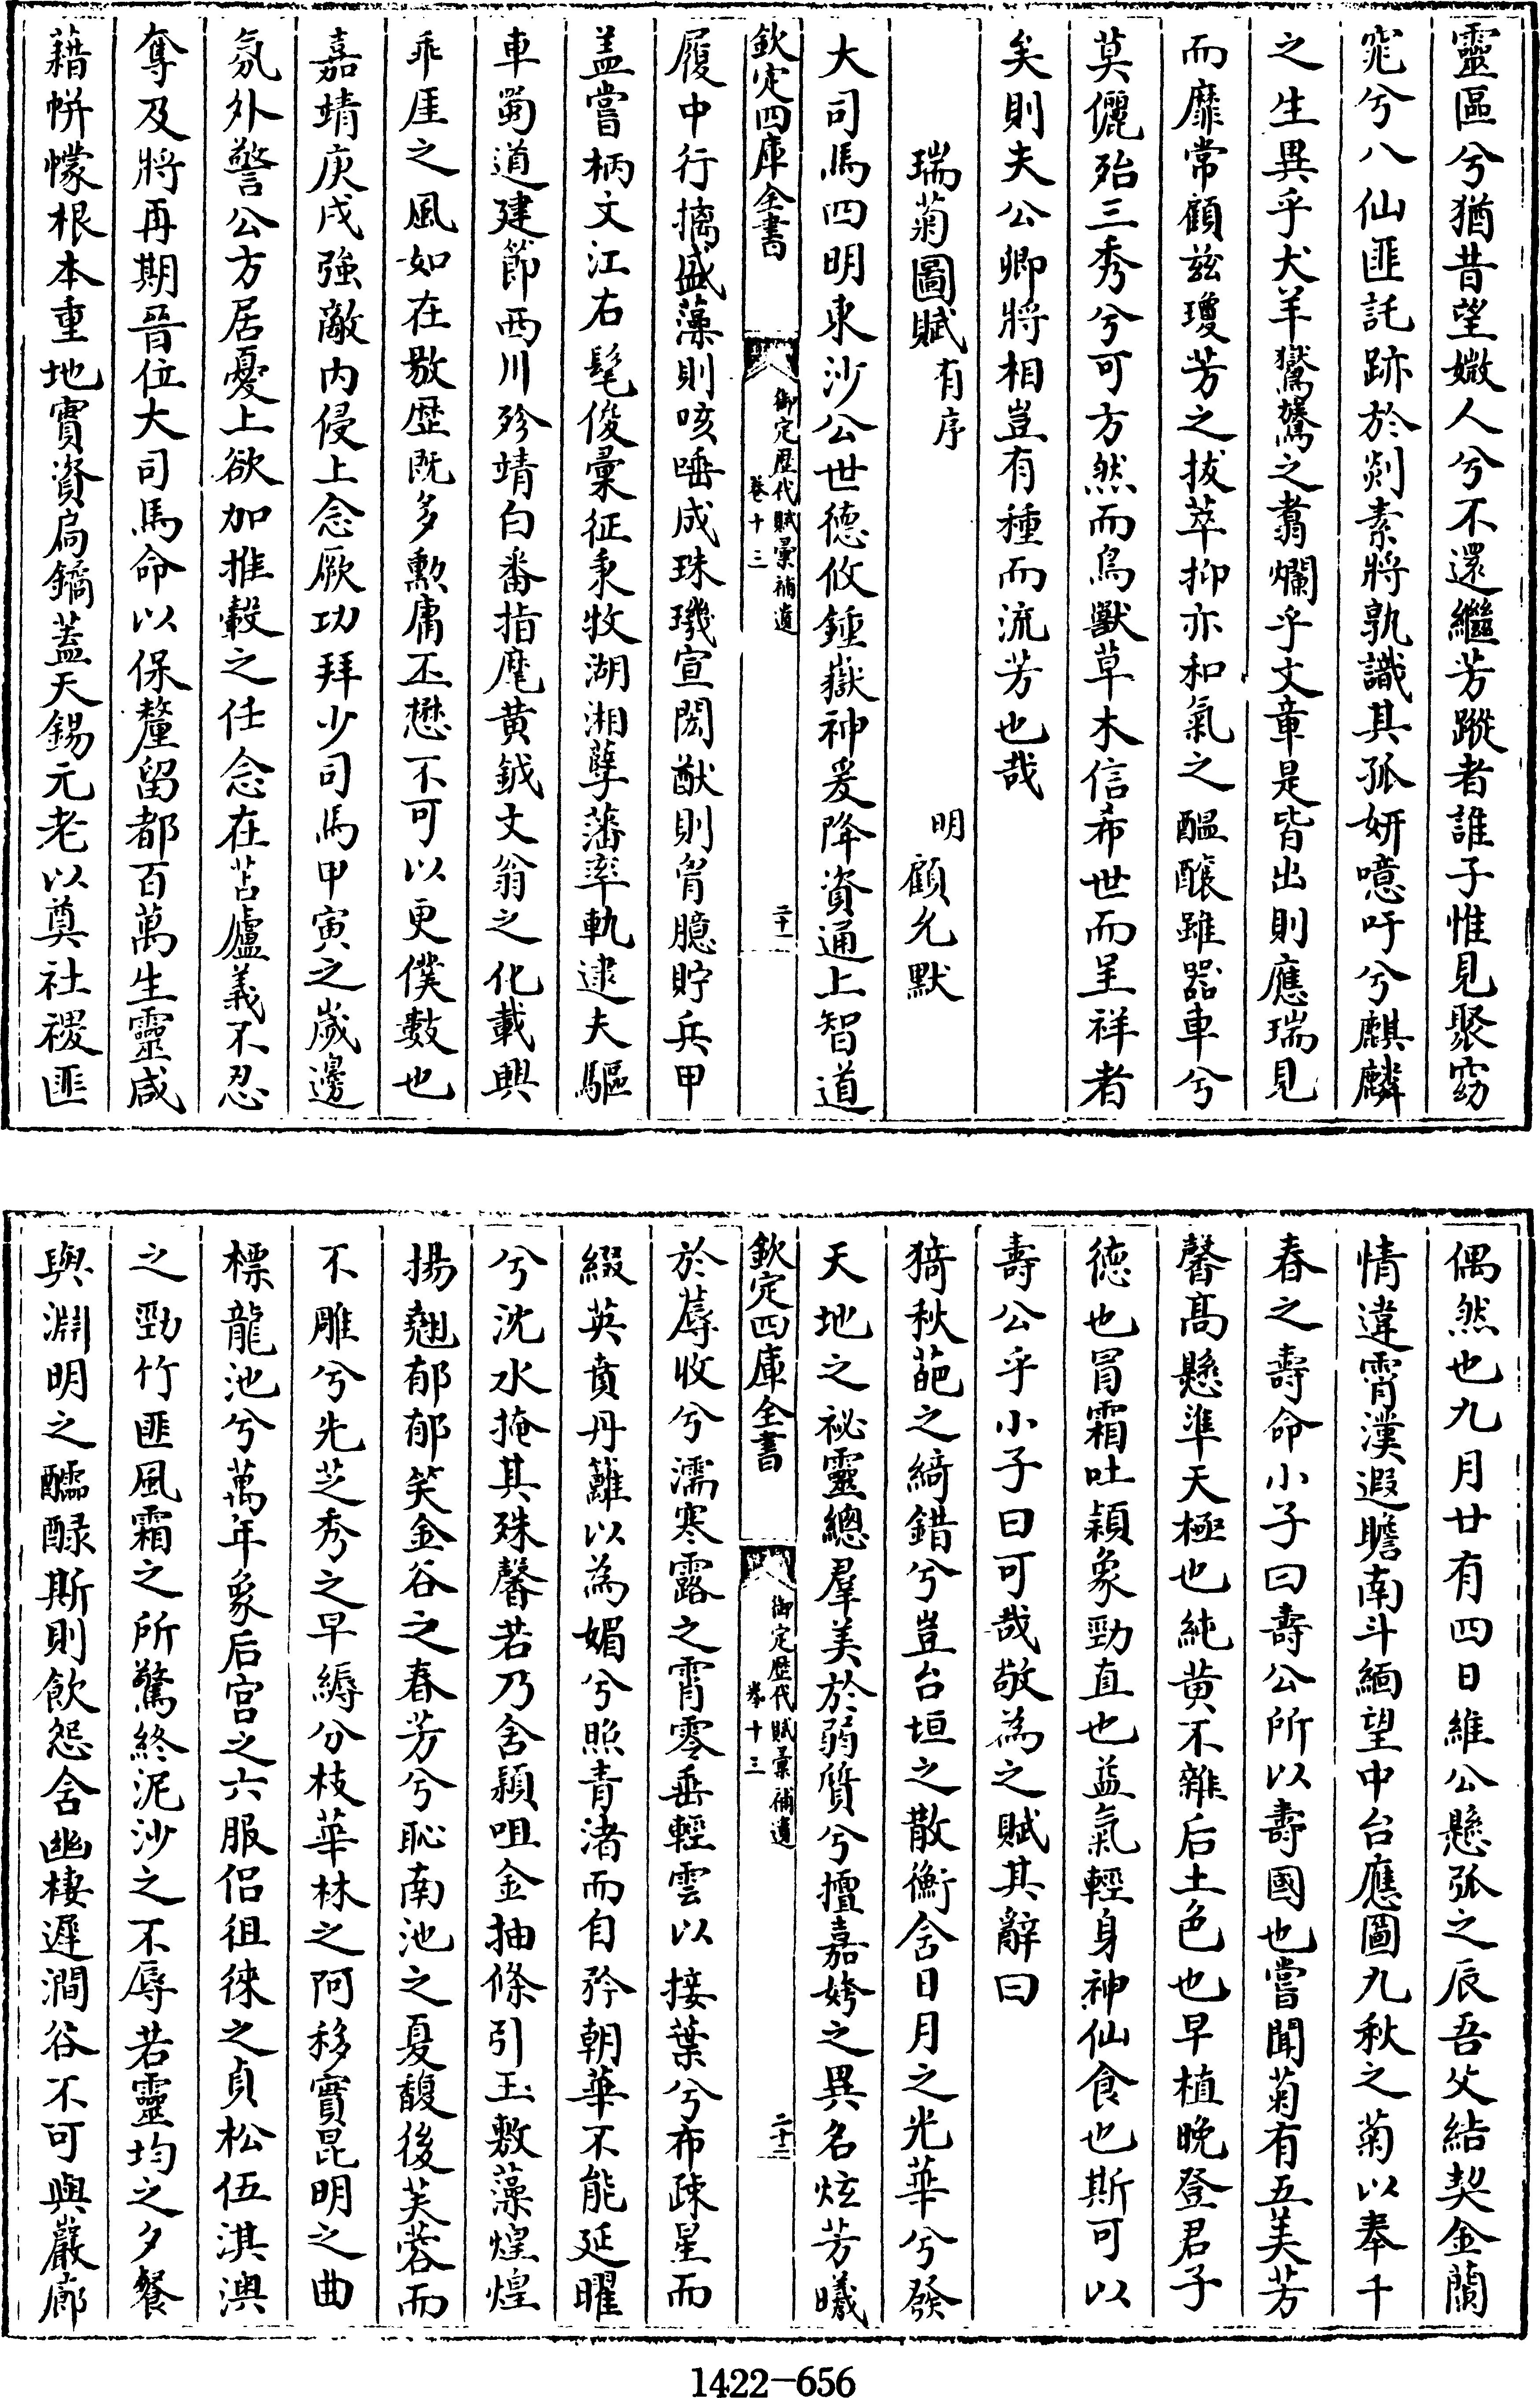 靈區兮猶昔望媺人兮不還繼芳蹤者誰子惟見聚窈
窕兮八仙匪託跡於剡素將孰識其孤妍噫吁兮麒麟
之生異乎犬羊鸑鷟之翥爛乎文章是皆出則應瑞見
而靡常顧兹瓊芳之拔萃抑亦和氣之醖釀雖器車兮
莫儷殆三秀兮可方然而鳥獸草木信希世而呈祥者
矣則夫公卿將相豈有種而流芳也哉
瑞菊圖賦有序 明顧允默
大司馬四明東沙公世德攸鍾嶽神爰降資通上智道
欽定四庫全書 御定歷代賦彙補遺 卷十三 二十一
履中行摛盛藻則咳唾成珠璣宣閎猷則胷臆貯兵甲
盖嘗柄文江右髦俊彙征秉牧湖湘孽藩率軌逮夫驅
車蜀道建節西川殄靖白番指麾黄鉞文翁之化載興
乖厓之風如在敭歴既多勲庸丕懋不可以更僕數也
嘉靖庚戌強敵内侵上念厥功拜少司馬甲寅之歲邊
氛外警公方居憂上欲加推轂之任念在苫廬義不忍
奪及將再期晉位大司馬命以保釐留都百萬生靈咸
藉帡幪根本重地實資扃鐍蓋天錫元老以奠社稷匪
偶然也九月廿有四日維公懸弧之辰吾父結契金蘭
情違霄漢遐瞻南斗緬望中台應圖九秋之菊以奉千
春之壽命小子曰壽公所以壽國也嘗聞菊有五美芳
馨髙懸準天極也純黄不雜后土色也早植晚登君子
德也冒霜吐頴象勁直也益氣輕身神仙食也斯可以
壽公乎小子曰可哉敬為之賦其辭曰
猗秋葩之綺錯兮豈台垣之散衡含日月之光華兮發
天地之祕靈總羣美於弱質兮擅嘉姱之異名炫芳曦
欽定四庫全書 御定歷代賦彙補遺 卷十三 二十二
於蓐收兮濡寒露之霄零垂輕雲以接葉兮布疎星而
綴英賁丹籬以為媚兮照青渚而自矜朝華不能延曜
兮沈水掩其殊馨若乃含頴咀金抽條引玉敷藻煌煌
揚翹郁郁笑金谷之春芳兮恥南池之夏馥後芙蓉而
不雕兮先芝秀之早縟分枝華林之阿移實昆明之曲
標龍池兮萬年象后宫之六服侣徂徠之貞松伍淇澳
之勁竹匪風霜之所驚終泥沙之不辱若靈均之夕餐
與淵明之醽醁斯則飲怨含幽棲遲澗谷不可與巖廊
1422-656